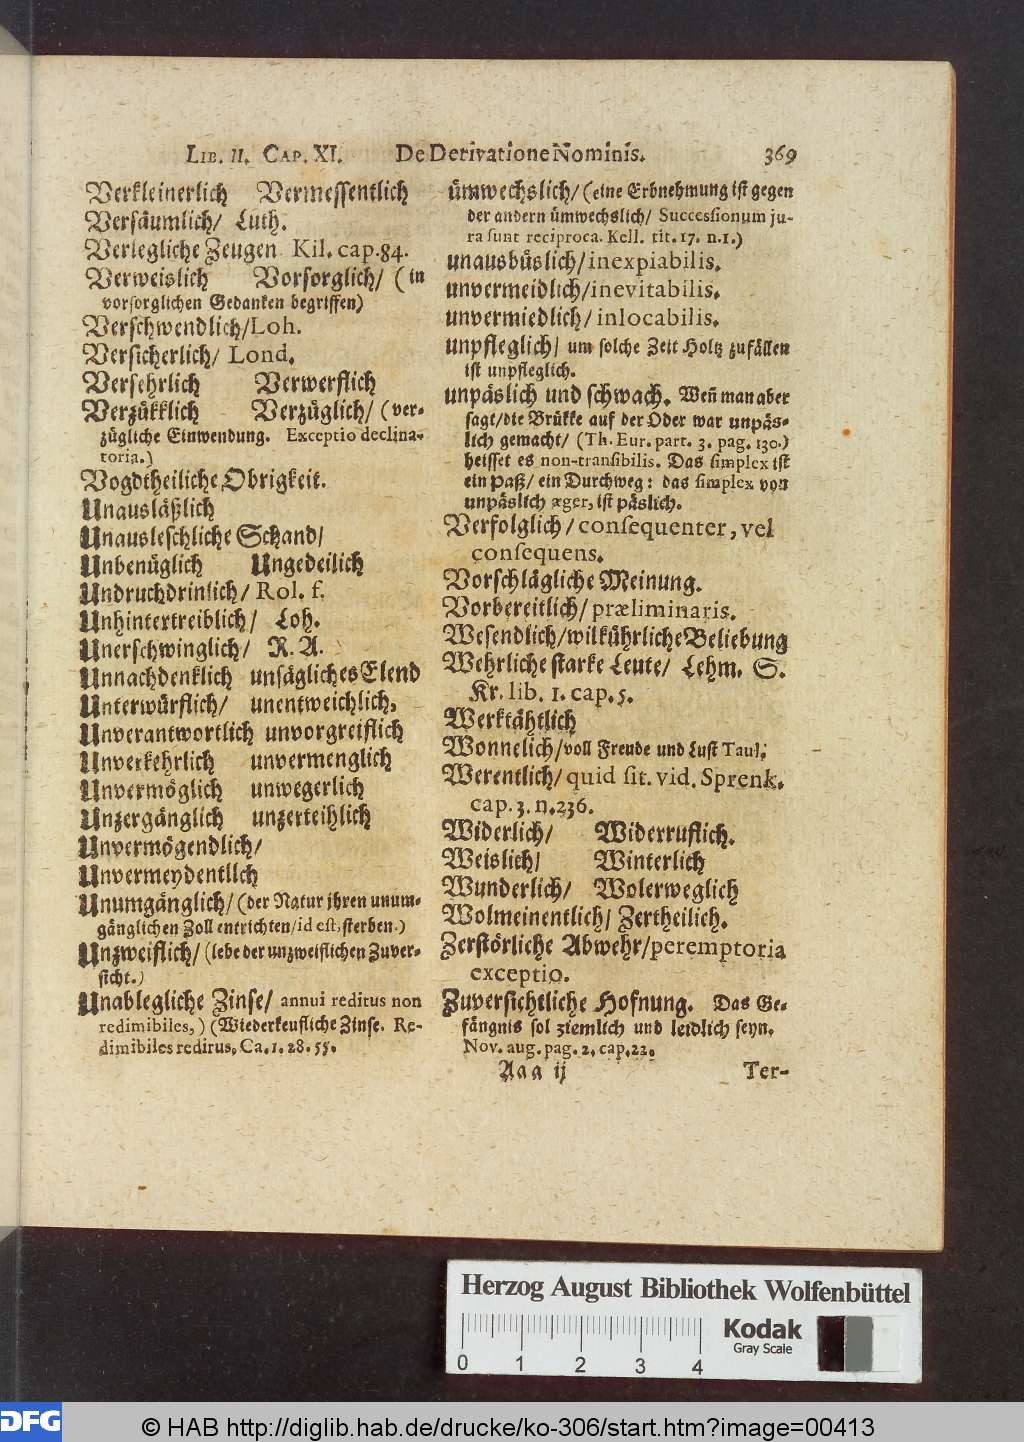 LIB. II. CAP. XI. De Derivatione Nominis. 369
Verkleinerlich Vermessentlich
Versäumlich/ Luth.
Verlegliche Zeugen Kil. cap. 84.
Verweislich Vorsorglich/ (in
vorsorglichen Gedanken begriffen)
Verschwendlich/Loh.
Versicherlich/ Lond.
Versehrlich Verwerflich
Verzükklich Verzüglich/ (ver-
zügliche Einwendung. Exceptio declina-
toria.)
Vogdtheiliche Obrigkeit.
Unausläßlich
Unausleschliche Schand/
Unbenüglich Ungedeilich
Undruchdrinlich/ Rol. f.
Unhintertreiblich/ Loh.
Unerschwinglich/ R. A.
Unnachdenklich unsägliches Elend
Unterwürflich/ unentweichlich,
Unverantwortlich unvorgreiflich
Unverkehrlich unvermenglich
Unvermöglich unwegerlich
Unzergänglich unzerteihlich
Unvermögendlich/
Unvermeydentllch
Unumgänglich/ (der Natur ihren unum-
gänglichen Zoll entrichten/id eſt, sterben.)
Unzweiflich/ (lebe der unzweiflichen Zuver-
sicht.)
Unablegliche Zinse/ annui reditus non
redimibiles,) (Wiederkeufliche Zinse. Re-
dimibiles redirus, Ca. 1. 28. 55.
ümwechslich/ (eine Erbnehmung ist gegen
der andern ümwechslich/ Succesſionum ju-
ra ſunt reciproca. Kell. tit. 17. n. 1.)
unausbüslich/inexpiabilis.
unvermeidlich/inevitabilis.
unvermiedlich/ inlocabilis.
unpfleglich/ um solche Zeit Holtz zufällen
ist unpfleglich.
unpäslich und schwach. Weñ man aber
sagt/die Brükke auf der Oder war unpäs-
lich gemacht/ (Th. Eur. part. 3. pag. 130.)
heisset es non-tranſibilis. Das ſimplex ist
ein Paß/ ein Durchweg: das ſimplex von
unpäslich æger, ist päslich.
Verfolglich/ conſequenter, vel
conſequens.
Vorschlägliche Meinung.
Vorbereitlich/ præliminaris.
Wesendlich/wilkührliche Beliebung
Wehrliche starke Leute/ Lehm. S.
Kr. lib. 1. cap. 5.
Werktähtlich
Wonnelich/voll Freude und Lust Taul.
Werentlich/ quid ſit. vid. Sprenk.
cap. 3. n. 236.
Widerlich/ Widerruflich.
Weislich/ Winterlich
Wunderlich/ Wolerweglich
Wolmeinentlich/ Zertheilich.
Zerstörliche Abwehr/peremptoria
exceptio.
Zuversichtliche Hofnung. Das Ge-
fängnis sol ziemlich und leidlich seyn.
Nov. aug. pag. 2. cap. 22.
Aaa ij Ter-
Herzog August Bibliothek Wolfenbüttel
0 1 2 3 4
Kodak
Gray Scale
DFG
© HAB http://diglib.hab.de/drucke/ko-306/start.htm?image=00413